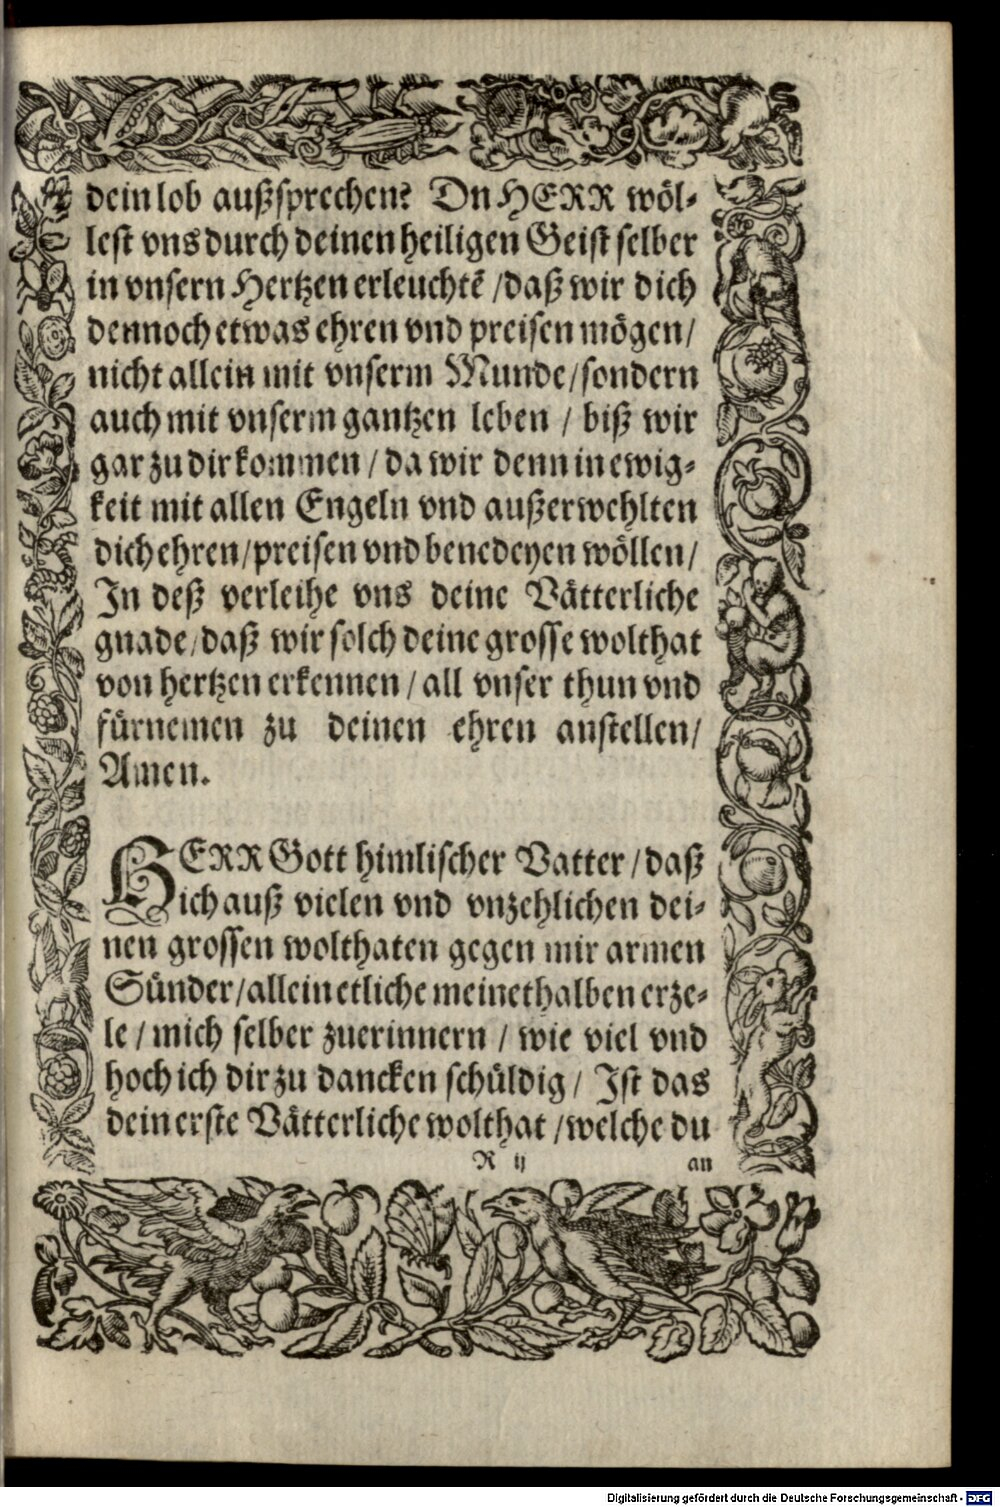 dein lob außsprechen? Dn HERR wöl⸗
lest vns durch deinen heiligen Geist selber
in vnsern Hertzen erleuchtē /daß wir dich
dennoch etwas ehren vnd preisen mögen/
nicht allein mit vnserm Munde/sondern
auch mit vnserm gantzen leben / biß wir
gar zu dir kommen / da wir denn in ewig⸗
keit mit allen Engeln vnd außerwehlten
dich ehren/preisen vnd benedeyen wöllen/
In deß verleihe vns deine Vätterliche
gnade/daß wir solch deine grosse wolthat
von hertzen erkennen / all vnser thun vnd
fürnemen zu deinen ehren anstellen/
Amen.
HERR Gott himlischer Vatter /daß
ich auß vielen vnd vnzehlichen dei⸗
nen grossen wolthaten gegen mir armen
Sünder/allein etliche meinethalben erze⸗
le / mich selber zuerinnern / wie viel vnd
hoch ich dir zu dancken schüldig / Ist das
dein erste Vätterliche wolthat /welche du
R ij an
Digitalisierung gefördert durch die Deutsche Forschungsgemeinschaft - DFG